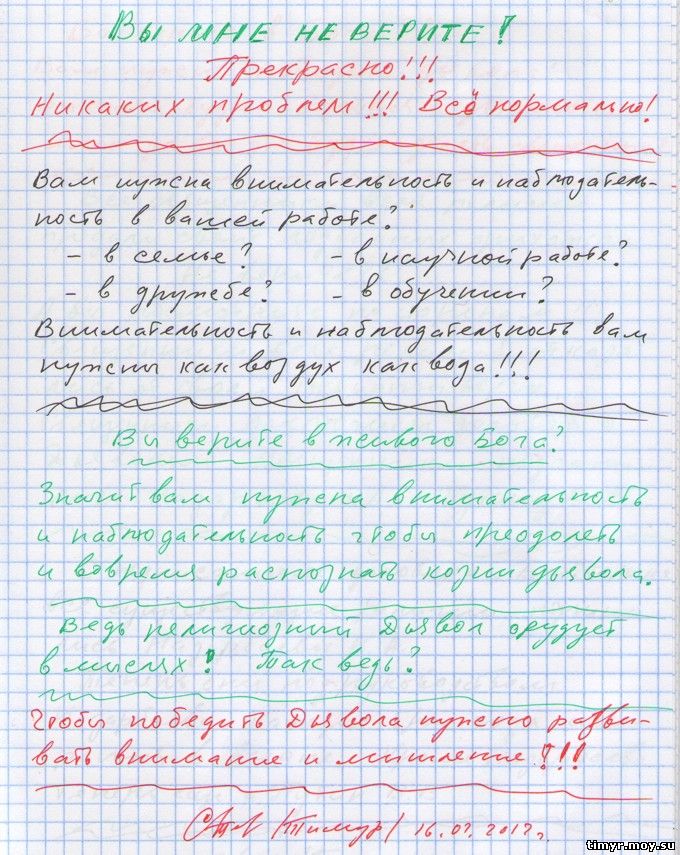 Вы мне не верите!
Прекрасно!!!
Никаких проблем!!! Всё нормально!
Вам нужна внимательность и наблюдатель-
ность в вашей работе?
- в семье? - в научной работе?
- в дружбе? - в обучении?
Внимательность и наблюдательность вам
нужны как воздух как вода!!!
Вы верите в живого Бога?
Значит вам нужна внимательность
и наблюдательность чтобы преодолеть
и вовремя распознать козни дьявола.
Ведь религиозный Дьявол орудует
в мыслях! Так ведь?
Чтобы победить Дьявола нужно разви-
вать внимание и мышление!!!
/Тимур/ 16.07.2012г.
timyr.moy.su